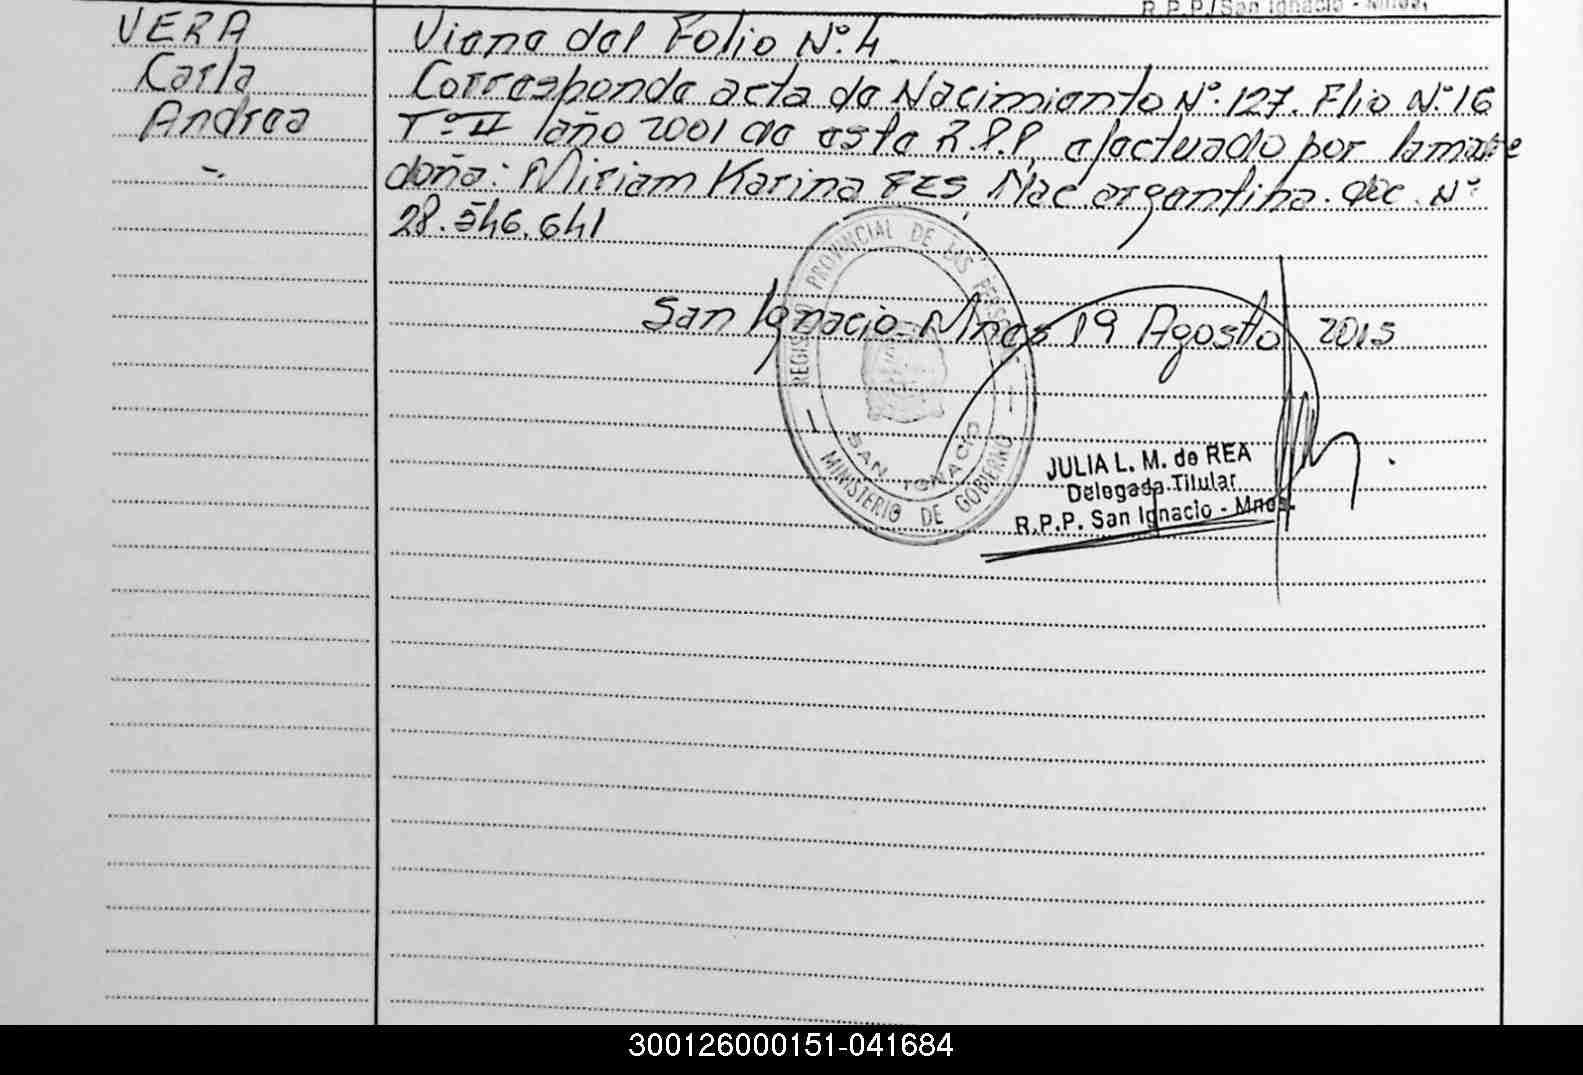 R.P.P. San Ignacio - Mnes.
VERA
Carla
Andrea
Viene del Folio N°. 4
Corresponde acta de Nacimiento N°. 127. Flio N°. 16
T°. II año 2001 de esta R.P.P. efectuado por la madre
doña: Miriam Karina FES, Nac argentina. doc. N°
28.546.641
San Ignacio - Mnes 19 Agosto 2015
REGISTRO PROVINCIAL DE LAS PERSONAS
SAN IGNACIO
MINISTERIO DE GOBIERNO
JULIA L. M. de REA
Delegada Titular
R.P.P. San Ignacio - Mnes.
300126000151-041684